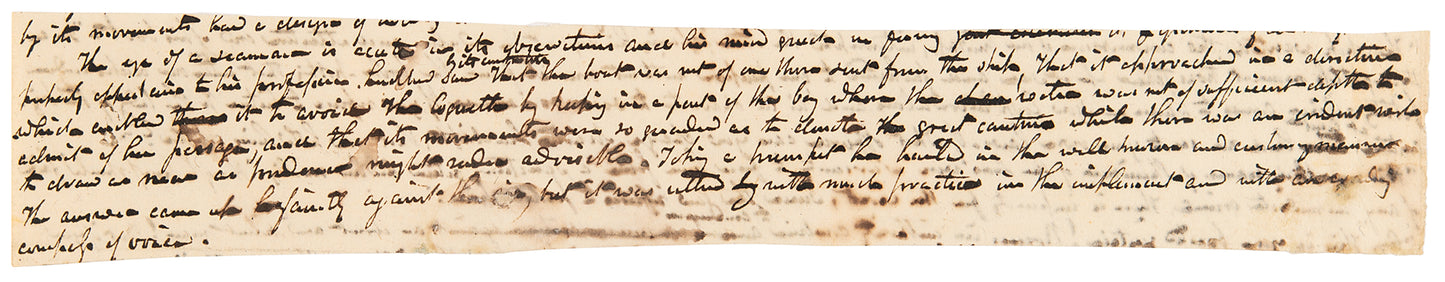 by its movements had a design of
The eye of a seaman is acute in its observations and his mind quick in forming opinions of
properly appertains to his profession. Ludlow saw instantly that the boat was not of one those sent from the ship, that it approached in a direction
which enabled it to avoid the Coquette by keeping in a part of the bay where the water was not of sufficient depth to
admit of her passage, and that its movements were so guarded as to denote the great caution while there was an evident wish
to draw as near as prudence might render advisable. Taking a trumpet he hailed in the well known and customary manner
The answer came up faintly against the air, but it was uttered by with much practice in the implement and with an exceeding
compass of voice.